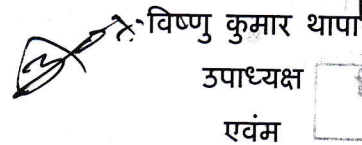 विष्णु कुमार थापा
उपाध्यक्ष
एवंम